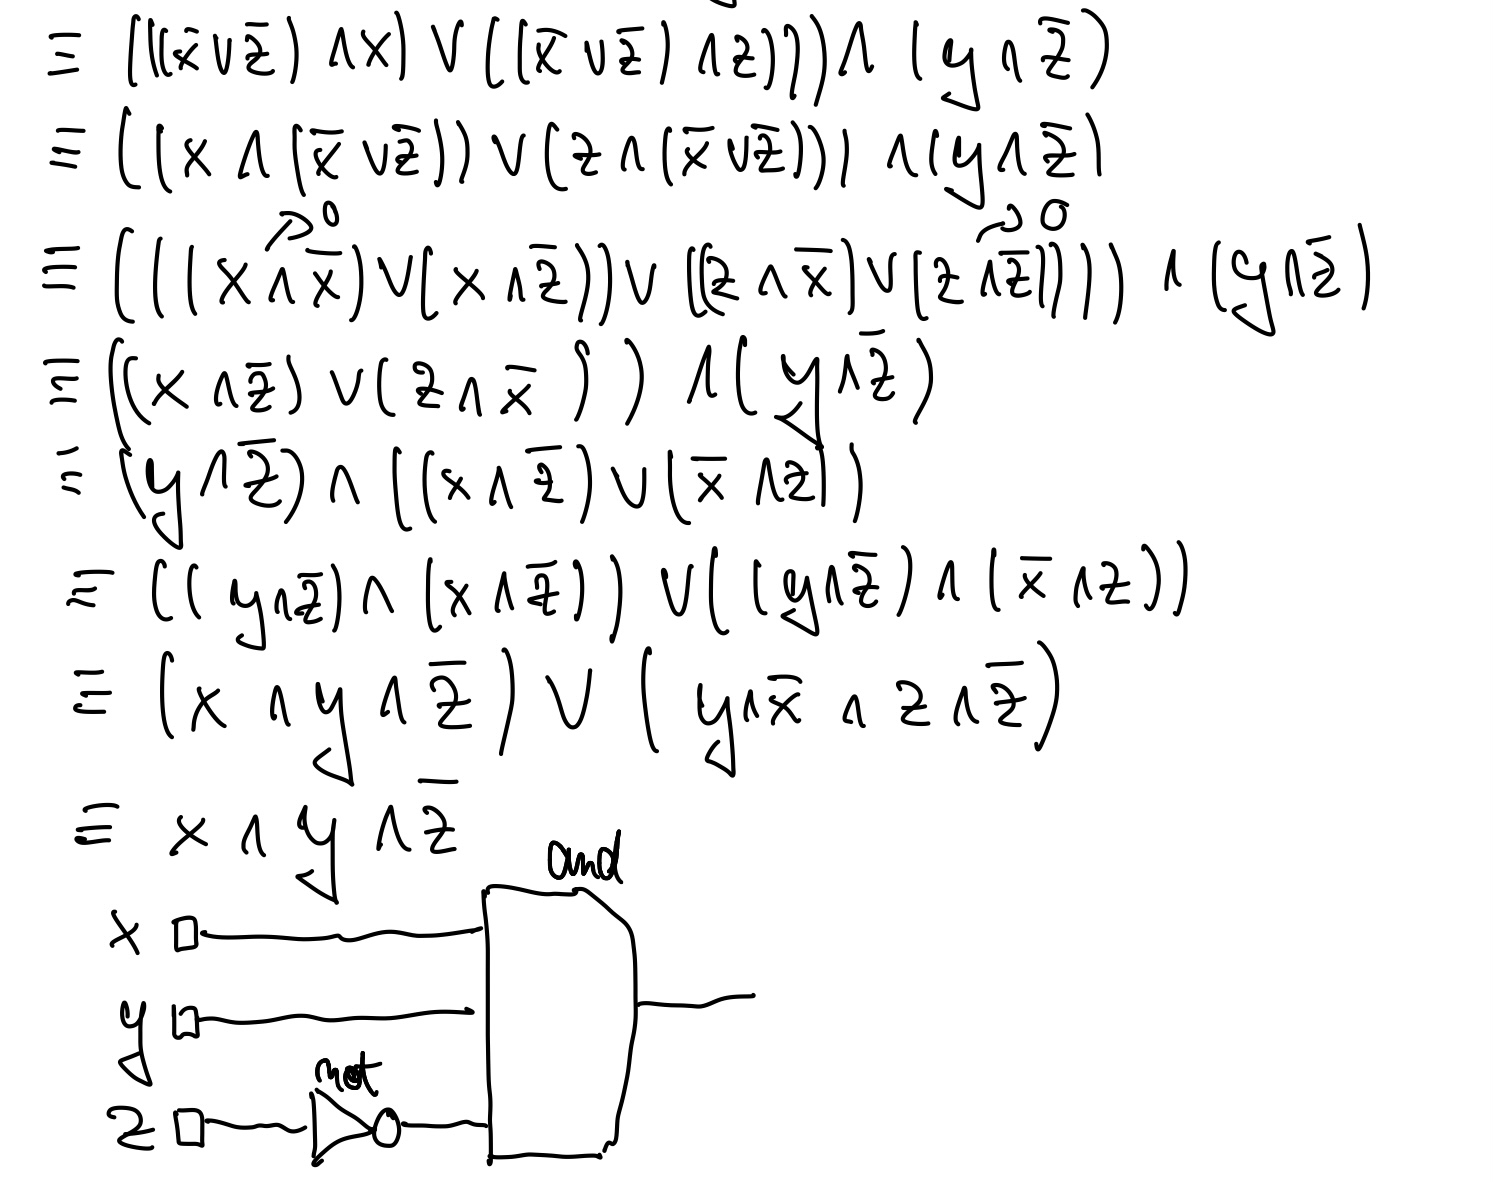 ≡ (((x̄ ∨ z̄) ∧ x) ∨ ((x̄ ∨ z̄) ∧ z))) ∧ (y ∧ z̄)
≡ ((x ∧ (x̄ ∨ z̄)) ∨ (z ∧ (x̄ ∨ z̄))) ∧ (y ∧ z̄)
→ 0 → 0
≡ (((x ∧ x̄) ∨ (x ∧ z̄)) ∨ ((z ∧ x̄) ∨ (z ∧ z̄)))) ∧ (y ∧ z̄)
≡ ((x ∧ z̄) ∨ (z ∧ x̄)) ∧ (y ∧ z̄)
≡ (y ∧ z̄) ∧ ((x ∧ z̄) ∨ (x̄ ∧ z))
≡ ((y ∧ z̄) ∧ (x ∧ z̄)) ∨ ((y ∧ z̄) ∧ (x̄ ∧ z))
≡ (x ∧ y ∧ z̄) ∨ (y ∧ x̄ ∧ z ∧ z̄)
≡ x ∧ y ∧ z̄
and
x
y
not
z